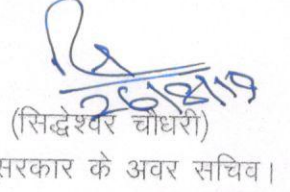 26/8/19
(सिद्धेश्वर चौधरी)
सरकार के अवर सचिव।